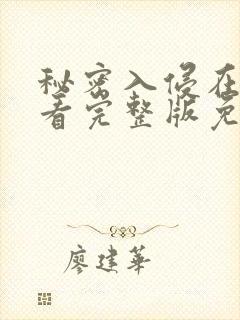 秘密入侵在
看完整版免
廖建华